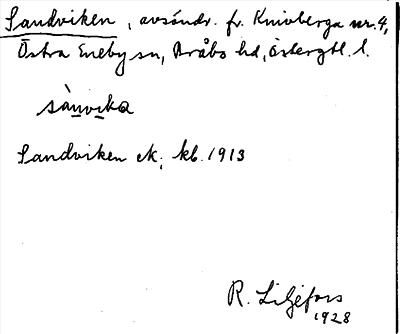 Sandviken, avsöndr. fr. Knivberga nr. 4,
Östra Eneby sn, Bråbo hd, Östergtl. l.
sànvika
Sandviken ek. kb. 1913
R. Liljefors
1928